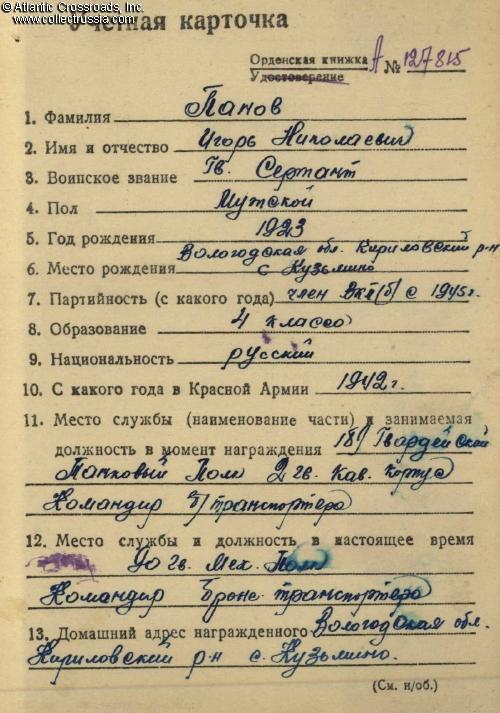 © Atlantic Crossroads, Inc.
www.collectrussia.com
Учетная карточка
Орденская книжка А № 127815
Удостоверение
1. Фамилия Панов
2. Имя и отчество Игорь Николаевич
3. Воинское звание Гв. Сержант
4. Пол Мужской
5. Год рождения 1923
Вологодская обл. Кириловский р-н
6. Место рождения с Кузьмино
7. Партийность (с какого года) член ВКП(б) с 1945г.
8. Образование 4 класса
9. Национальность русский
10. С какого года в Красной Армии 1942г.
11. Место службы (наименование части) и занимаемая
должность в момент награждения 189 Гвардейской
Танковый Полк 2 гв. Кав. Корпус
Командир б/транспортера
12. Место службы и должность в настоящее время
90 гв. Мех. Полк
Командир Броне транспортера
13. Домашний адрес награжденного Вологодская обл.
Кириловский р-н с. Кузьмино.
(См. н/об.)